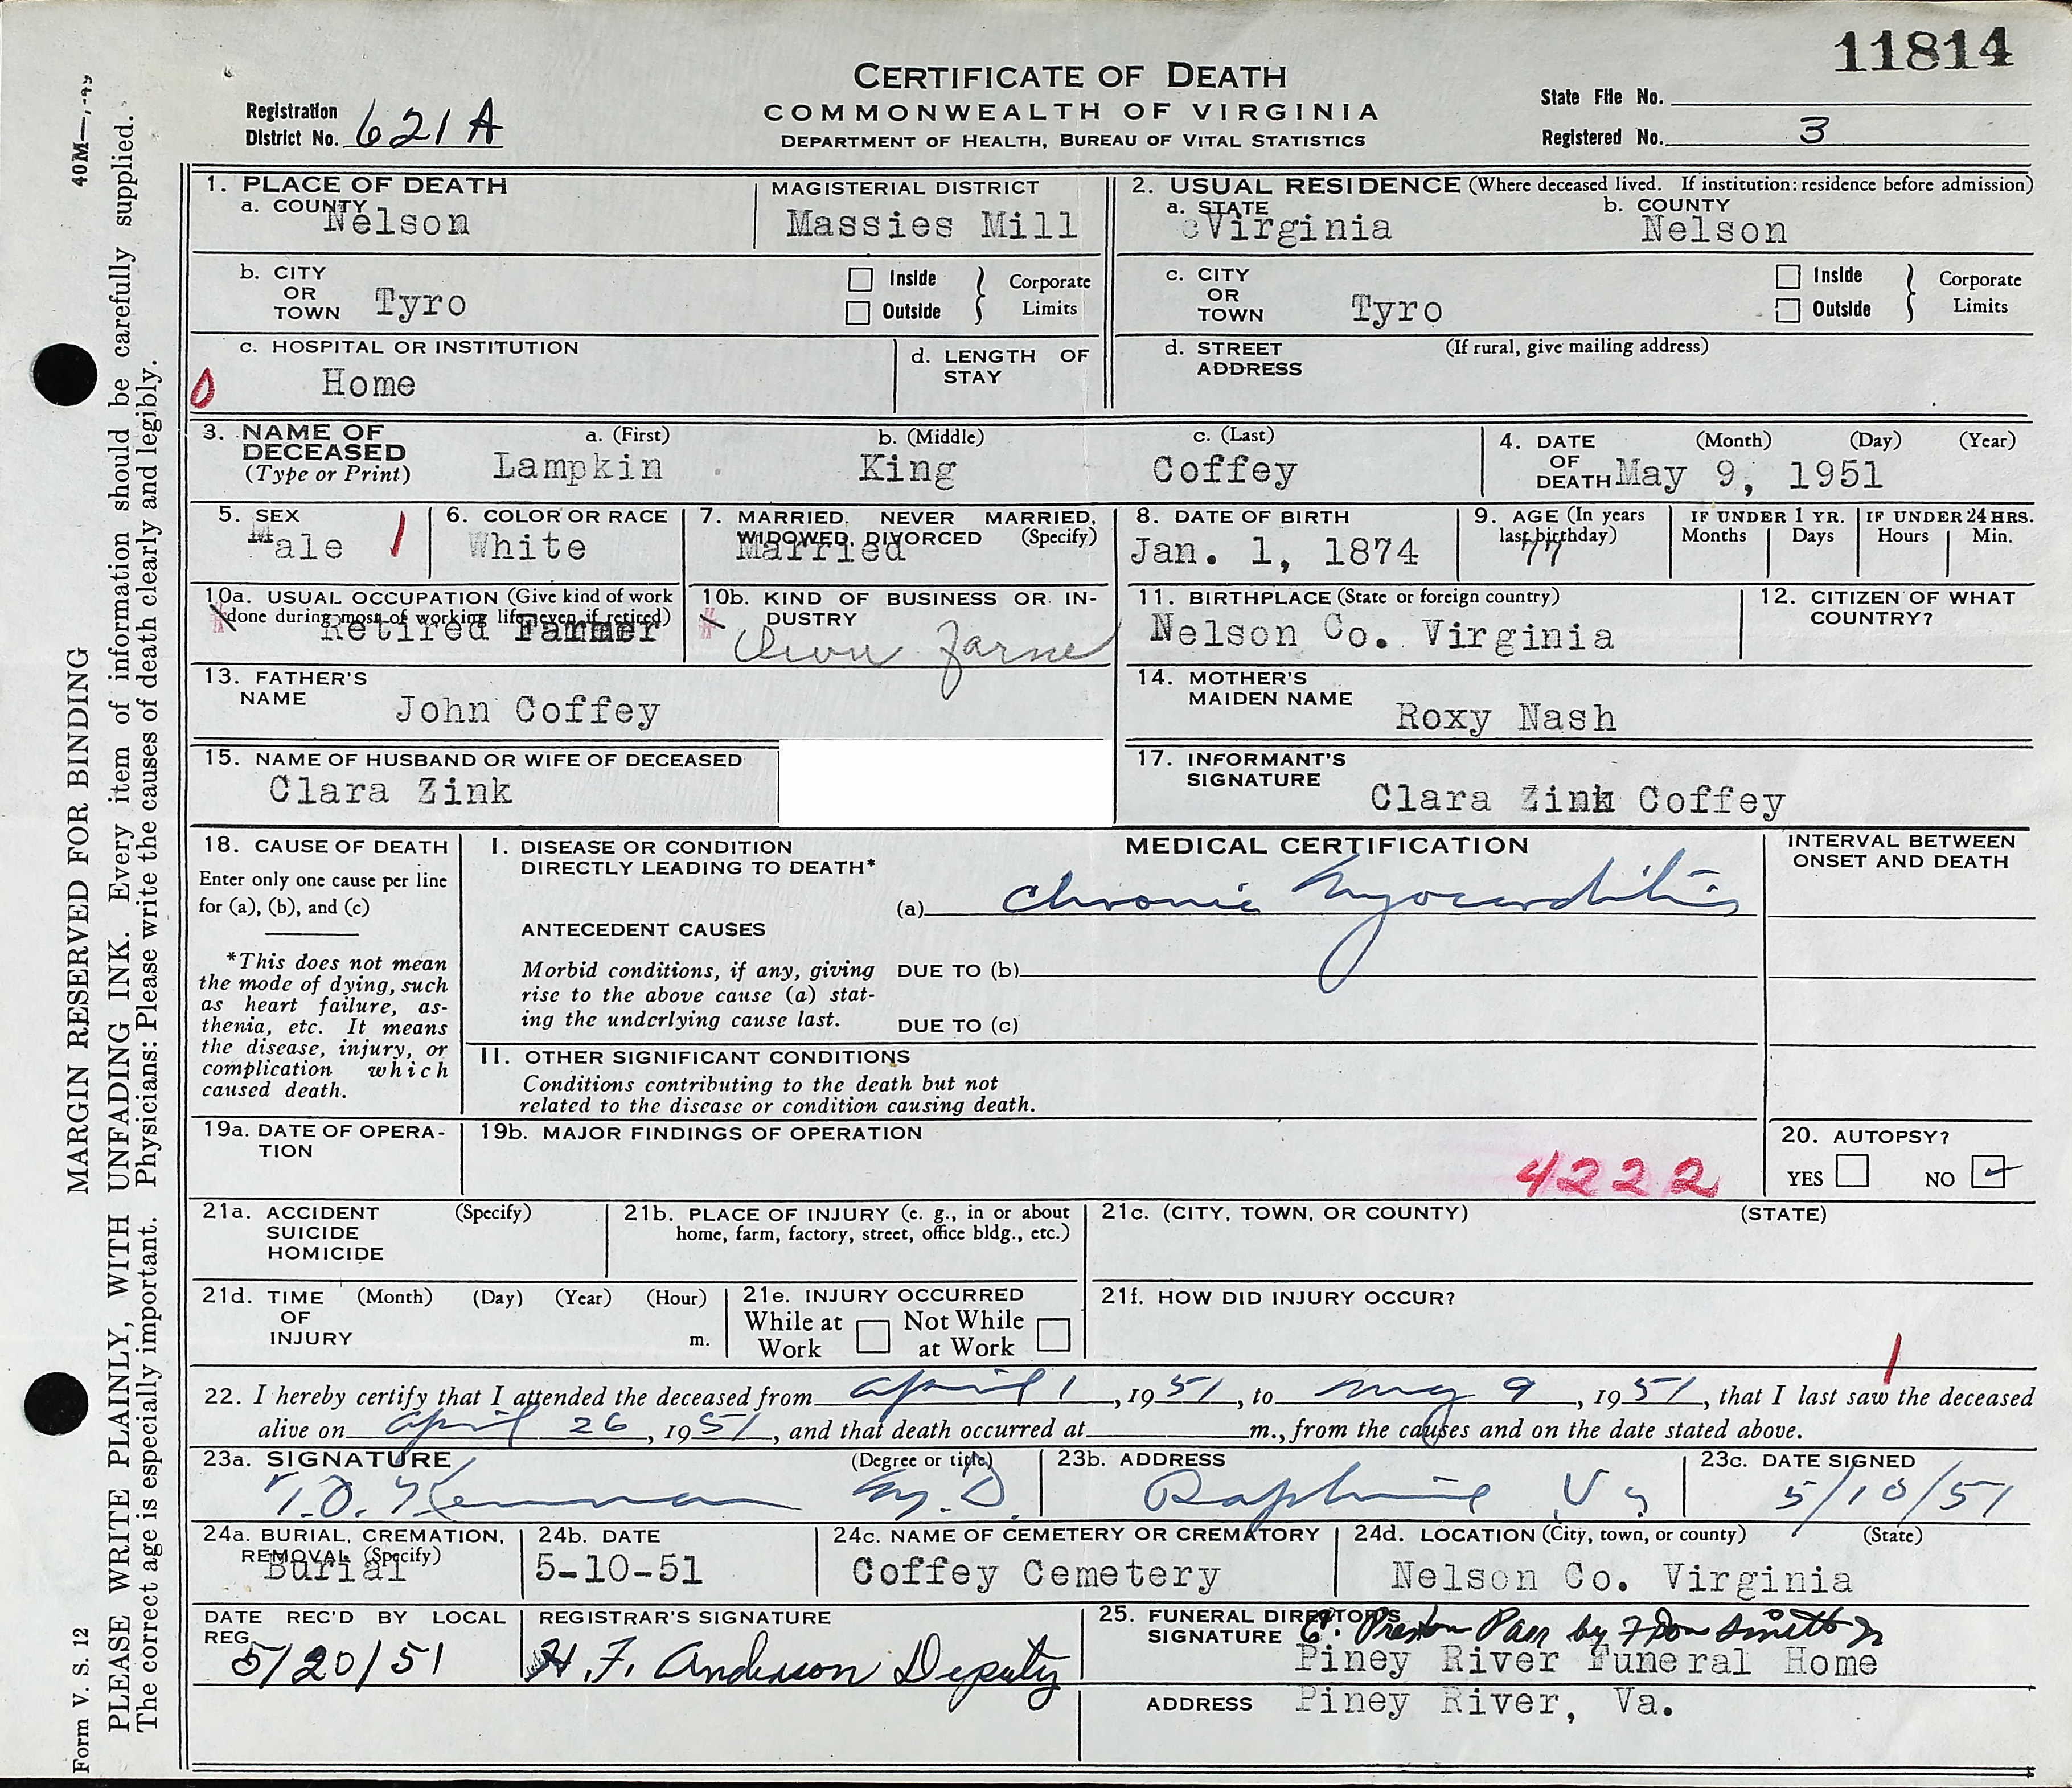 11814
CERTIFICATE OF DEATH
COMMONWEALTH OF VIRGINIA
DEPARTMENT OF HEALTH, BUREAU OF VITAL STATISTICS
Registration District No. 621 A
State File No.
Registered No. 3
MARGIN RESERVED FOR BINDING
PLEASE WRITE PLAINLY, WITH UNFADING INK. Every item of information should be carefully supplied.
The correct age is especially important. Physicians: Please write the causes of death clearly and legibly.
Form V. S. 12
40M
1. PLACE OF DEATH
a. COUNTY Nelson
MAGISTERIAL DISTRICT Massies Mill
2. USUAL RESIDENCE (Where deceased lived. If institution: residence before admission)
a. STATE Virginia
b. COUNTY Nelson
b. CITY OR TOWN Tyro
Inside Outside } Corporate Limits
c. CITY OR TOWN Tyro
Inside Outside } Corporate Limits
c. HOSPITAL OR INSTITUTION
0 Home
d. LENGTH OF STAY
d. STREET ADDRESS (If rural, give mailing address)
3. NAME OF DECEASED (Type or Print)
a. (First) Lampkin
b. (Middle) King
c. (Last) Coffey
4. DATE OF DEATH (Month) (Day) (Year) May 9, 1951
5. SEX Male 1
6. COLOR OR RACE White
7. MARRIED, NEVER MARRIED, WIDOWED, DIVORCED (Specify) Married
8. DATE OF BIRTH Jan. 1, 1874
9. AGE (In years last birthday) 77
IF UNDER 1 YR. Months Days
IF UNDER 24 HRS. Hours Min.
10a. USUAL OCCUPATION (Give kind of work done during most of working life, even if retired) Retired Farmer
10b. KIND OF BUSINESS OR INDUSTRY Own Farm
11. BIRTHPLACE (State or foreign country) Nelson Co. Virginia
12. CITIZEN OF WHAT COUNTRY?
13. FATHER'S NAME John Coffey
14. MOTHER'S MAIDEN NAME Roxy Nash
15. NAME OF HUSBAND OR WIFE OF DECEASED Clara Zink
17. INFORMANT'S SIGNATURE Clara Zink Coffey
18. CAUSE OF DEATH
Enter only one cause per line
for (a), (b), and (c)
*This does not mean
the mode of dying, such
as heart failure, as-
thenia, etc. It means
the disease, injury, or
complication which
caused death.
MEDICAL CERTIFICATION
INTERVAL BETWEEN ONSET AND DEATH
I. DISEASE OR CONDITION
DIRECTLY LEADING TO DEATH*
(a) Chronic Myocarditis
ANTECEDENT CAUSES
Morbid conditions, if any, giving
rise to the above cause (a) stat-
ing the underlying cause last.
DUE TO (b)
DUE TO (c)
II. OTHER SIGNIFICANT CONDITIONS
Conditions contributing to the death but not
related to the disease or condition causing death.
19a. DATE OF OPERA-
TION
19b. MAJOR FINDINGS OF OPERATION
4222
20. AUTOPSY?
YES NO ✓
21a. ACCIDENT SUICIDE HOMICIDE (Specify)
21b. PLACE OF INJURY (e. g., in or about
home, farm, factory, street, office bldg., etc.)
21c. (CITY, TOWN, OR COUNTY) (STATE)
21d. TIME OF INJURY (Month) (Day) (Year) (Hour) m.
21e. INJURY OCCURRED
While at Work Not While at Work
21f. HOW DID INJURY OCCUR?
1
22. I hereby certify that I attended the deceased from April 1, 1951, to May 9, 1951, that I last saw the deceased
alive on April 26, 1951, and that death occurred at m., from the causes and on the date stated above.
23a. SIGNATURE (Degree or title) M.D.
23b. ADDRESS Raphine Va
23c. DATE SIGNED 5/10/51
24a. BURIAL, CREMATION, REMOVAL (Specify) Burial
24b. DATE 5-10-51
24c. NAME OF CEMETERY OR CREMATORY Coffey Cemetery
24d. LOCATION (City, town, or county) (State) Nelson Co. Virginia
DATE REC'D BY LOCAL REG. 5/20/51
REGISTRAR'S SIGNATURE H. F. Anderson Deputy
25. FUNERAL DIRECTOR'S SIGNATURE Preston Parr by
Piney River Funeral Home
ADDRESS Piney River, Va.